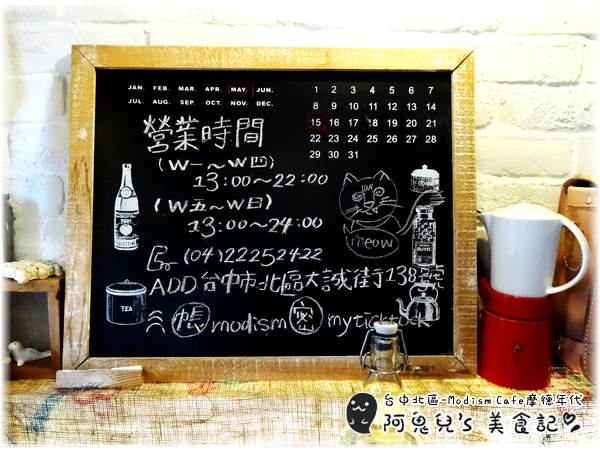 JAN. FEB. MAR. APR. MAY. JUN.
JUL. AUG. SEP. OCT. NOV. DEC.
1 2 3 4 5 6 7
8 9 10 11 12 13 14
15 16 17 18 19 20 21
22 23 24 25 26 27 28
29 30 31
營業時間
(W一~W四)
13:00~22:00
(W五~W日)
13:00~24:00
(04)22252422
ADD台中市北區大誠街138號
帳modism密myticktock
meow
TEA
台中北區-Modism Cafe摩德年代
阿鬼兒's 美食記